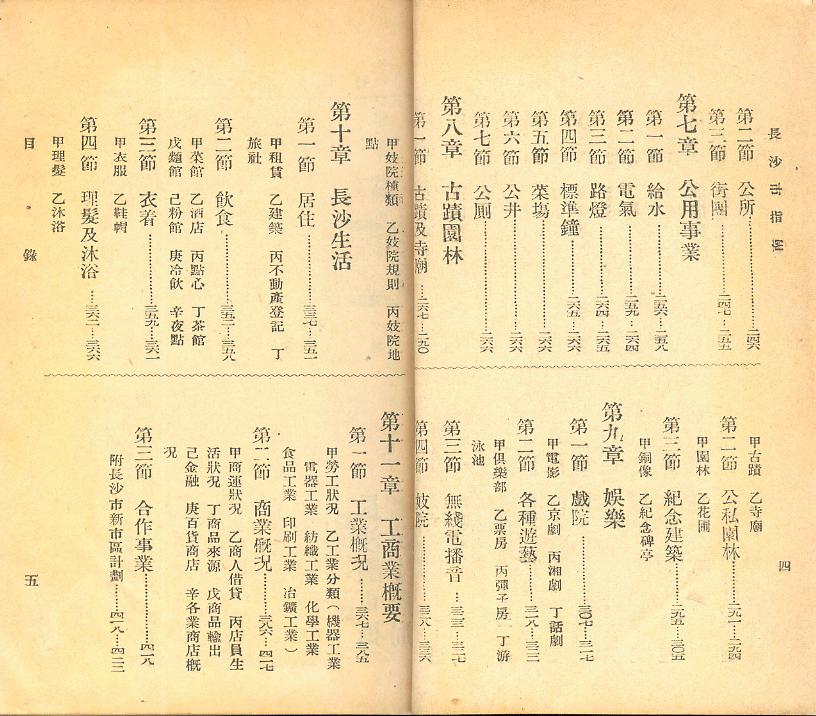 長沙市指南
第二節　公所……二四六
第三節　街團……二四七…二五五
第七章　公用事業
第一節　給水……二五六…二五八
第二節　電氣……二五九…二六四
第三節　路燈……二六四…二六五
第四節　標準鐘……二六五…二六六
第五節　菜場……二六六
第六節　公井……二六六
第七節　公厠……二六六
第八章　古蹟園林
第一節　古蹟及寺廟…二六七…二九〇
四
甲古蹟　乙寺廟
第二節　公私園林……二九一…二九四
甲園林　乙花圃
第三節　紀念建築……二九五…三〇五
甲銅像　乙紀念碑亭
第九章　娛樂
第一節　戲院……三〇七…三一七
甲電影　乙京劇　丙湘劇　丁話劇
第二節　各種遊藝……三一八…三二三
甲俱樂部　乙票房　丙彈子房　丁游
泳池
第三節　無綫電播音…三二三…三二七
第四節　妓院……三二八…三三六
甲妓院種類　乙妓院規則　丙妓院地
點
第十章　長沙生活
第一節　居住……三三七…三五一
甲租賃　乙建築　丙不動產登記　丁
旅社
第二節　飲食……三五二…三五八
甲菜館　乙酒店　丙點心　丁茶館
戊麵館　己粉館　庚冷飲　辛夜點
第三節　衣着……三五九…三六二
甲衣服　乙鞋帽
第四節　理髮及沐浴…三六二…三六六
甲理髮　乙沐浴
目　錄
第十一章　工商業概要
第一節　工業概況……三六七…三八五
甲勞工狀況　乙工業分類（機器工業
電器工業　紡織工業　化學工業
食品工業　印刷工業　冶鑛工業）
第二節　商業概況……三八六…四一七
甲商運狀況　乙商人借貸　丙店員生
活狀況　丁商品來源　戊商品輸出
己金融　庚百貨商店　辛各業商店概
況
第三節　合作事業……四一八
附長沙市新市區計劃……四一八…四二二
五